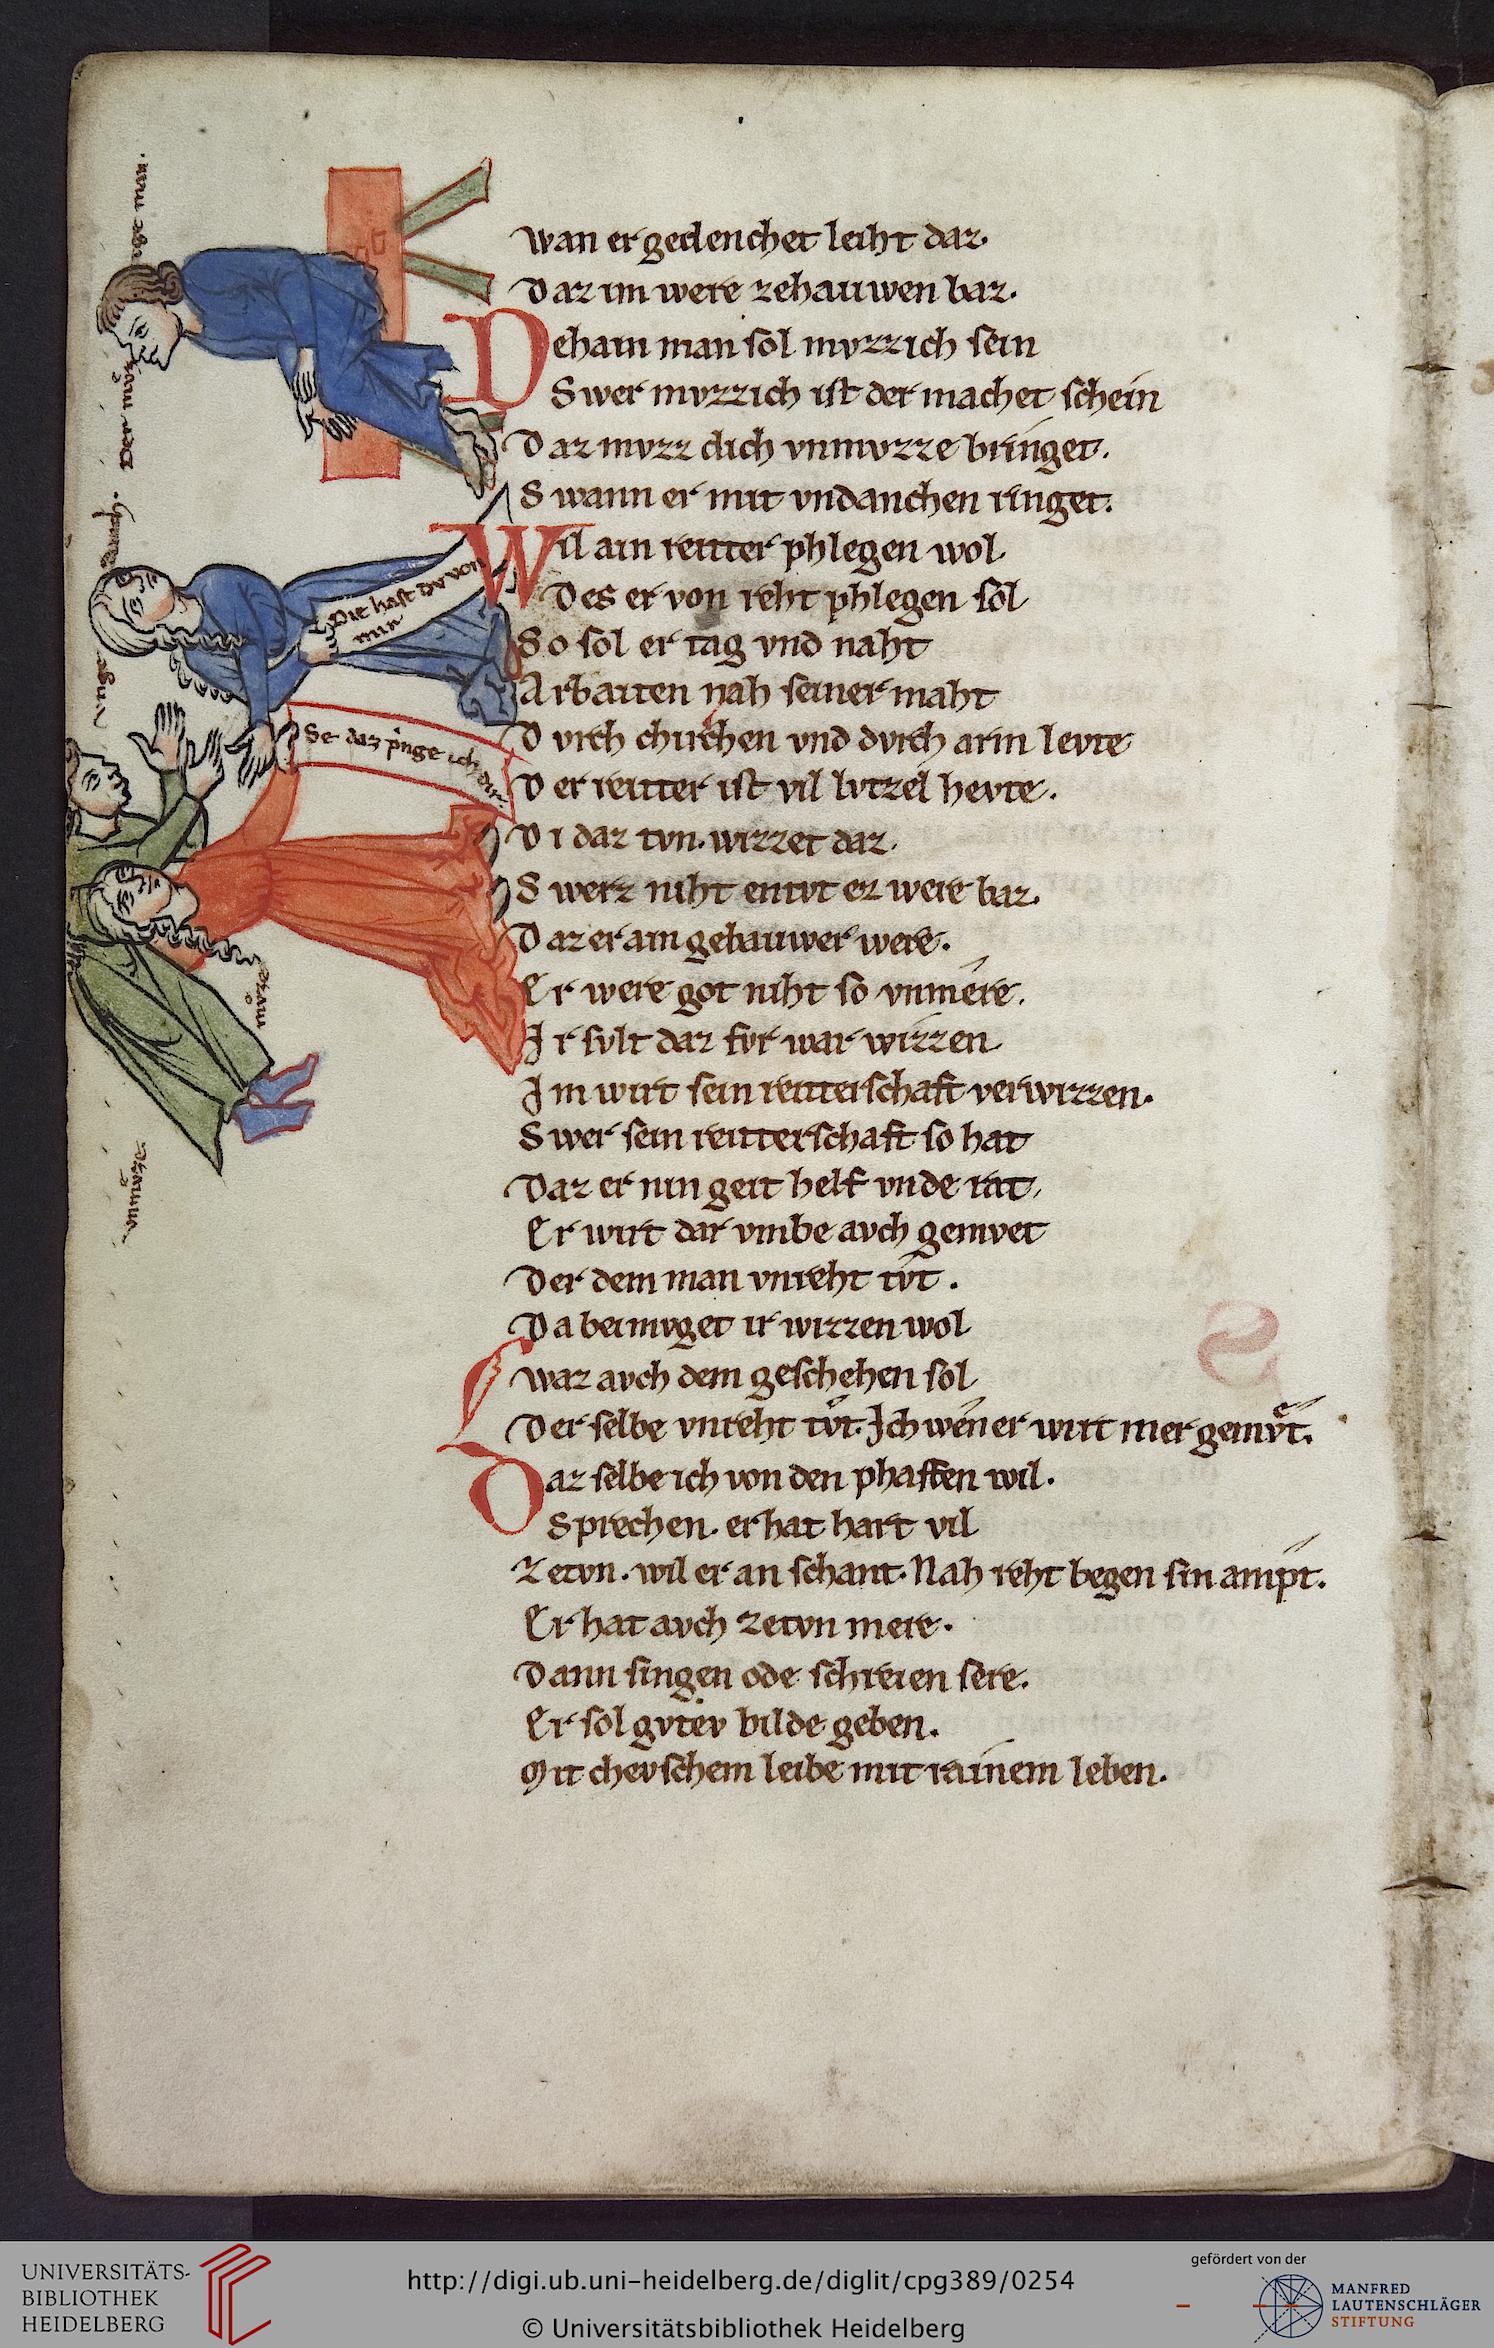 wan er gedenchet leiht daz.
Daz im were zehauwen baz.
Dehain man sol mvzzich sein
Swer mvzzich ist der machet schein
Daz mvzz dich vnmvzze bringet.
Swann er mit vndanchen ringet.
Wil ain reitter phlegen wol
Des er von reht phlegen sol
So sol er tag vnd naht
Arbaiten nah seiner maht
Dvrch chirchen vnd dvrch arm levte
Der reitter ist vil lvtzel hevte.
Di daz tvn. wizzet daz.
Swerz niht entvt ez were baz.
Daz er ain gebauwer were.
Er were got niht so vnmere.
Ir svlt daz fvr war wizzen
Im wirt sein reitterschaft verwizzen.
Swer sein reitterschaft so hat
Daz er nin geit helf vnde rat.
Er wirt dar vmbe avch gemvet
Der dem man vnreht tvͦt.
Da bei mvget ir wizzen wol
waz avch dem geschehen sol
Der selbe vnreht tvͦt. Ich wen er wirt mer gemvͤt.
Daz selbe ich von den phaffen wil.
Sprechen. er hat hart vil
Zetvn. wil er an schant. Nah reht begen sin ampt.
Er hat avch zetvn mere.
Dann singen ode schreien sere.
Er sol gvtev bilde geben.
Mit chevschem leibe mit rainem leben.
Der mvͦz ege man.
Dit hast dv von
mir
Se daz pringe ich dir.
mvͦze
vnmvͦze
UNIVERSITÄTS-
BIBLIOTHEK
HEIDELBERG
http://digi.ub.uni-heidelberg.de/diglit/cpg389/0254
© Universitätsbibliothek Heidelberg
gefördert von der
MANFRED
LAUTENSCHLÄGER
STIFTUNG